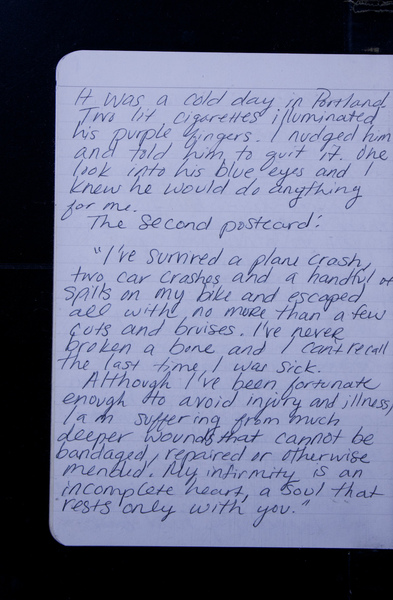 It was a cold day in Portland.
Two lit cigarettes illuminated
his purple fingers. I nudged him
and told him to quit it. One
look into his blue eyes and I
knew he would do anything
for me.
The second postcard:
"I've survived a plane crash,
two car crashes and a handful of
spills on my bike and escaped
all with no more than a few
cuts and bruises. I've never
broken a bone and I can't recall
the last time I was sick.
Although I've been fortunate
enough to avoid injury and illness,
I am suffering from much
deeper wounds that cannot be
bandaged, repaired or otherwise
mended. My infirmity is an
incomplete heart, a soul that
rests only with you."